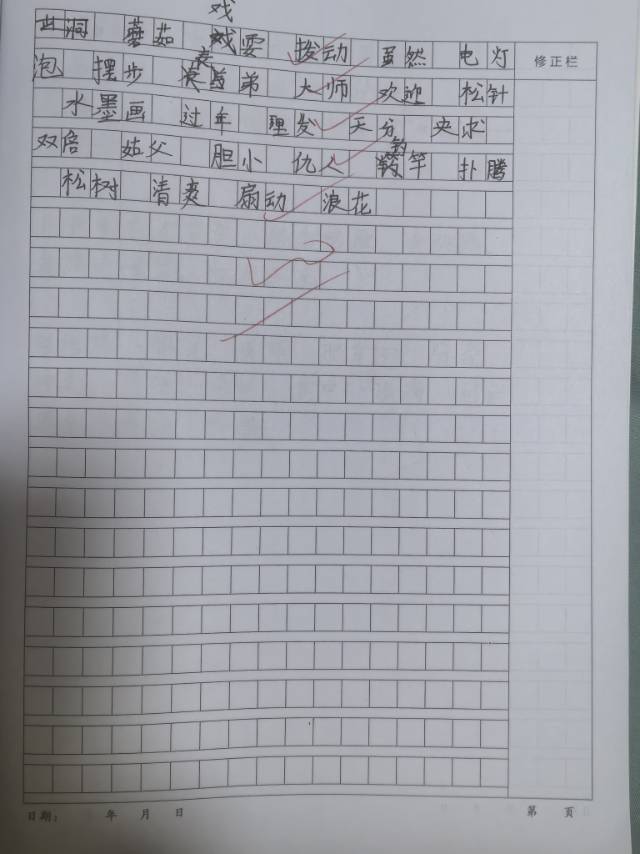 戏
山洞 蘑茹 戏耍 拨动 虽然 电灯
修正栏
泡 摆步 衰兄弟 大师 欢迎 松针
水墨画 过年 理发 天分 央求
双倍 姑父 胆小 仇人 钓竿 扑腾
松树 清爽 扇动 浪花
日期: 年 月 日
第 页